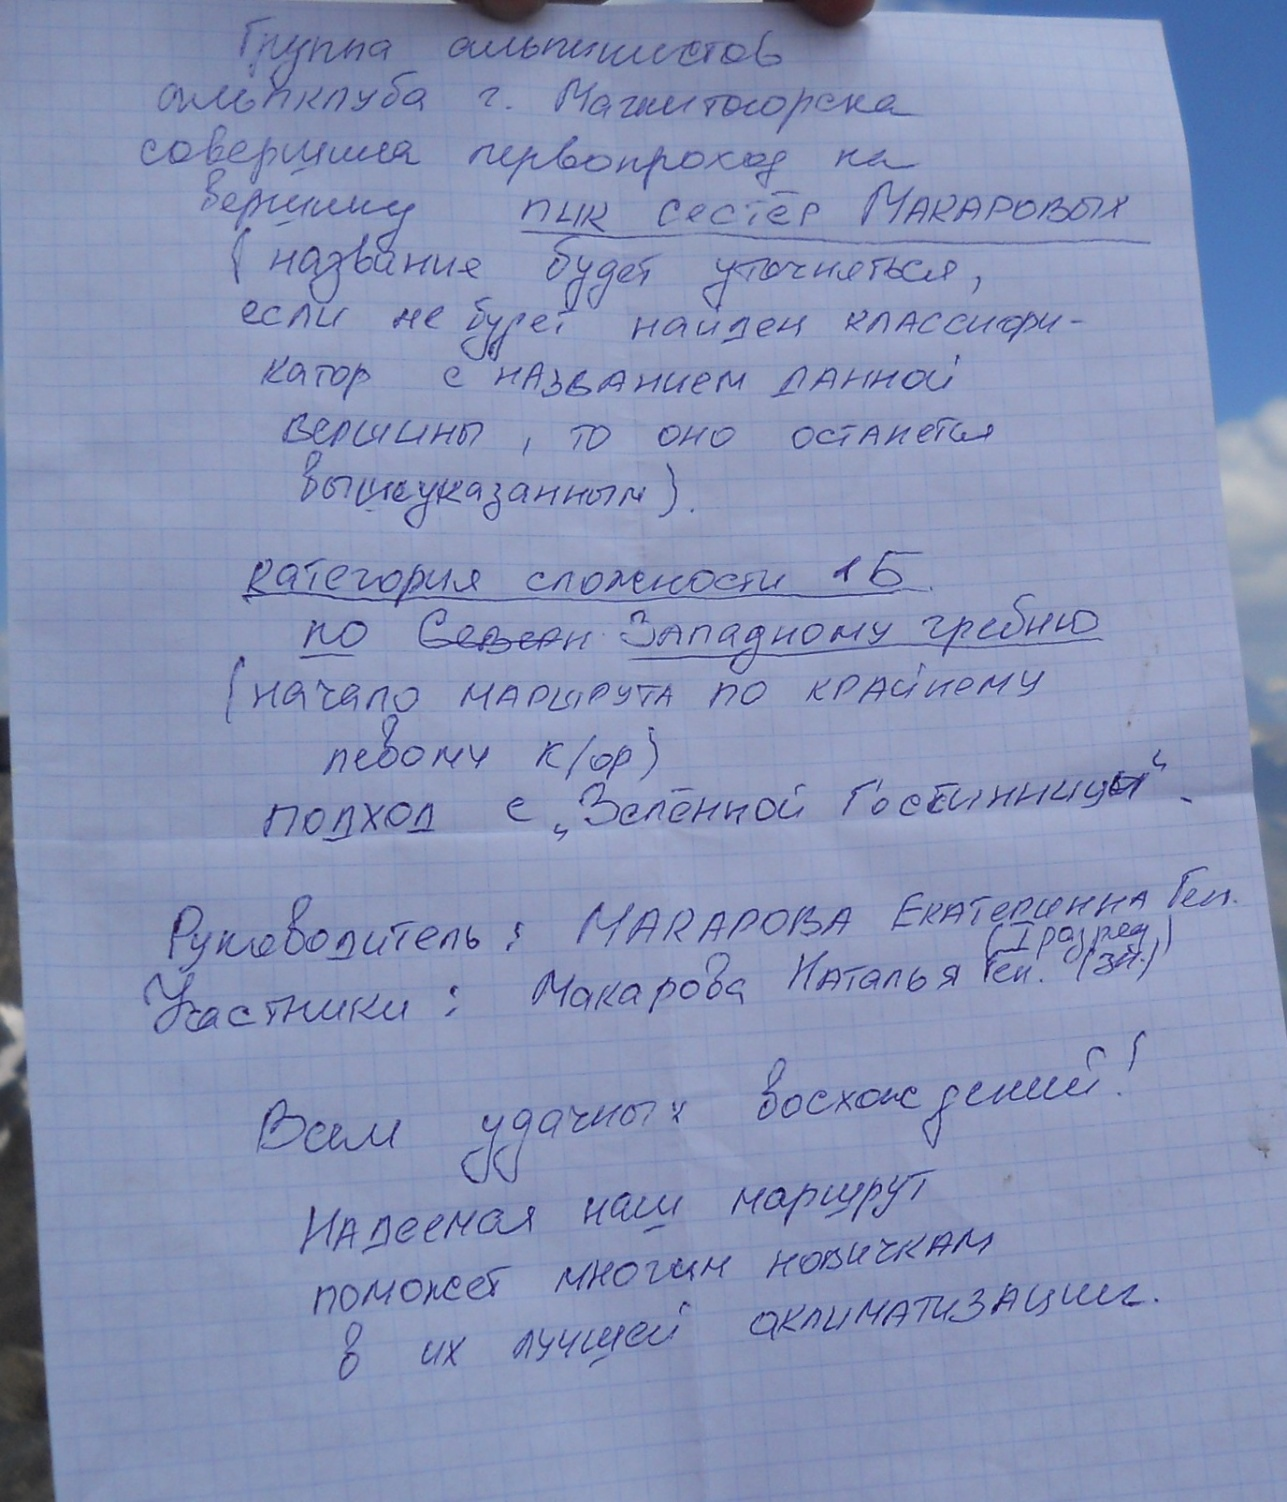 Группа альпинистов
альпклуба г. Магнитогорска
совершила первопроход на
вершину ПИК СЕСТЁР МАКАРОВЫХ
(название будет уточняться,
если не будет найден классифи-
катор с названием данной
вершины, то оно останется
вышеуказанным).
Категория сложности 1Б
по Северн Западному гребню
(начало маршрута по крайнему
левому к/ф)
подход с „Зелённой Гостинницы“.
Руководитель: МАКАРОВА ЕКАТЕРИННА Ген.
(I разряд)
Участники: Макарова Наталья Ген. (зн.)
Всем удачных восхождений!
Надеемся наш маршрут
поможет многим новичкам
в их лучшей аклиматизации.